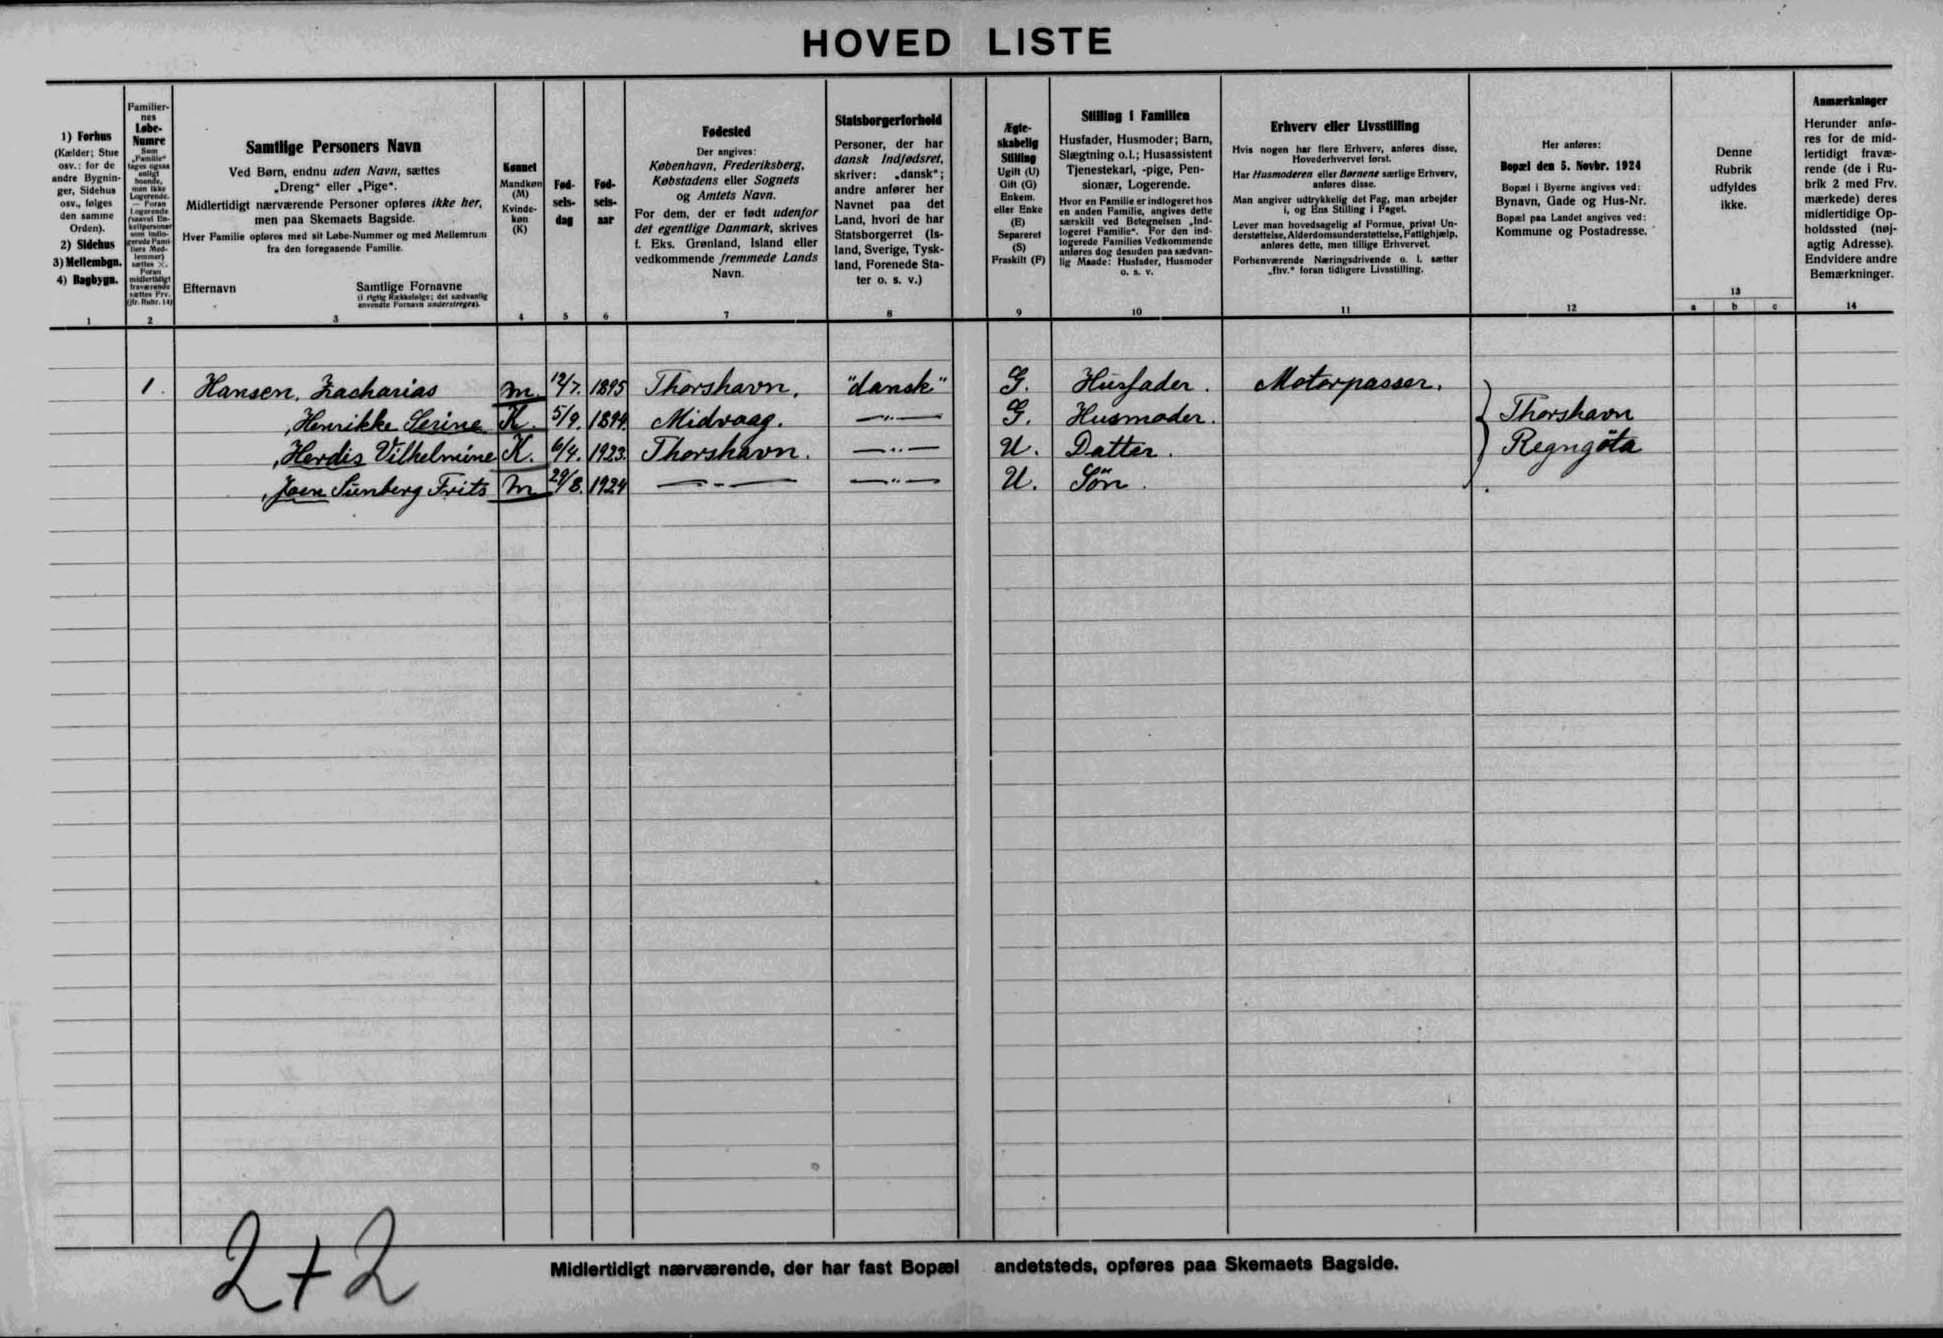 HOVED LISTE
1) Forhus
(Kælder; Stue
osv.: for de
andre Bygnin-
ger, Sidehus
osv., følges
den samme
Orden).
2) Sidehus
3) Mellembgn.
4) Bagbygn.
1
Familier-
nes
Løbe-
Numre
Som
„Familie“
tages ogsaa
enligt
boende,
men ikke
Logerende.
— Foran
Logerende
(saavel En-
keltpersoner
som indlo-
gerede Fami-
liers Med-
lemmer)
sættes ×.
Foran
midlertidigt
fraværende
sættes Frv.
(jfr. Rubr. 14)
2
Samtlige Personers Navn
Ved Børn, endnu uden Navn, sættes
„Dreng“ eller „Pige“.
Midlertidigt nærværende Personer opføres ikke her,
men paa Skemaets Bagside.
Hver Familie opføres med sit Løbe-Nummer og med Mellemrum
fra den foregaaende Familie.
Efternavn
Samtlige Fornavne
(i rigtig Rækkefølge; det sædvanlig
anvendte Fornavn understreges).
3
Kønnet
Mandkøn
(M)
Kvinde-
køn
(K)
4
Fød-
sels-
dag
5
Fød-
sels-
aar
6
Fødested
Der angives:
København, Frederiksberg,
Købstadens eller Sognets
og Amtets Navn.
For dem, der er født udenfor
det egentlige Danmark, skrives
f. Eks. Grønland, Island eller
vedkommende fremmede Lands
Navn.
7
Statsborgerforhold
Personer, der har
dansk Indfødsret,
skriver: „dansk“;
andre anfører her
Navnet paa det
Land, hvori de har
Statsborgerret (Is-
land, Sverige, Tysk-
land, Forenede Sta-
ter o. s. v.)
8
Ægte-
skabelig
Stilling
Ugift (U)
Gift (G)
Enkem.
eller Enke
(E)
Separeret
(S)
Fraskilt (F)
9
Stilling i Familien
Husfader, Husmoder; Barn,
Slægtning o.l.; Husassistent
Tjenestekarl, -pige, Pen-
sionær, Logerende.
Hvor en Familie er indlogeret hos
en anden Familie, angives dette
særskilt ved Betegnelsen „Ind-
logeret Familie“. For den ind-
logerede Families Vedkommende
anføres dog desuden paa sædvan-
lig Maade: Husfader, Husmoder
o. s. v.
10
Erhverv eller Livsstilling
Hvis nogen har flere Erhverv, anføres disse,
Hovederhvervet først.
Har Husmoderen eller Børnene særlige Erhverv,
anføres disse.
Man angiver udtrykkelig det Fag, man arbejder
i, og Ens Stilling i Faget.
Lever man hovedsagelig af Formue, privat Un-
derstøttelse, Alderdomsunderstøttelse, Fattighjælp,
anføres dette, men tillige Erhvervet.
Forhenværende Næringsdrivende o. l. sætter
„fhv.“ foran tidligere Livsstilling.
11
Her anføres:
Bopæl den 5. Novbr. 1924
Bopæl i Byerne angives ved:
Bynavn, Gade og Hus-Nr.
Bopæl paa Landet angives ved:
Kommune og Postadresse.
12
Denne
Rubrik
udfyldes
ikke.
13
a b c
Anmærkninger
Herunder anfø-
res for de mid-
lertidigt fravæ-
rende (de i Ru-
brik 2 med Frv.
mærkede) deres
midlertidige Op-
holdssted (nøj-
agtig Adresse).
Endvidere andre
Bemærkninger.
14
1. Hansen, Zacharias m. 12/7. 1895 Thorshavn. "dansk" G. Husfader. Motorpasser.
, Henrikke Serine K. 5/9. 1894. Midvaag. —"— G. Husmoder. Thorshavn
, Herdis Vilhelmine K. 6/4. 1923. Thorshavn. —"— U. Datter. Regngöta
, Joen Sunberg Frits m 29/8. 1924 —"— —"— U. Sön.
2+2
Midlertidigt nærværende, der har fast Bopæl andetsteds, opføres paa Skemaets Bagside.